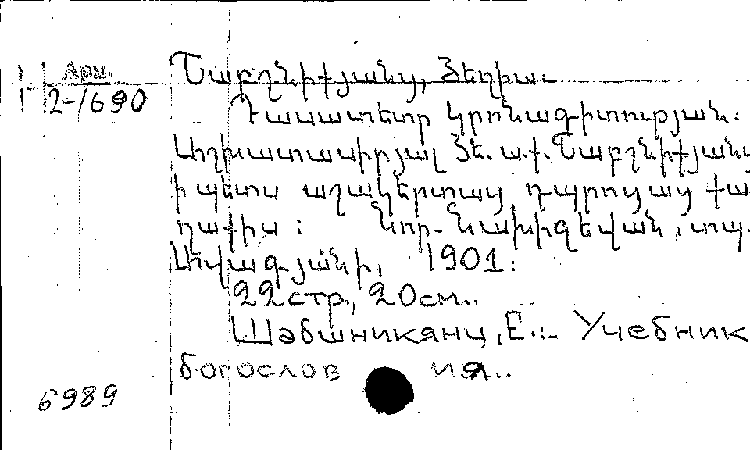 Арм.
2-1690
Շաբշնիքյանց, Եղիա.
Դասատետր կրոնագիտության:
Աշխատասիրյալ Եե. ա. ք. Շաբշնիքյանց
ի պետս աշակերտաց դպրոցաց քա
ղաքիս: Նոր-Նախիջեվան, տպ.
Ավագյանի, 1901:
22стр., 20см..
Шабшникянц, Е.:- Учебник
богословия..
6989